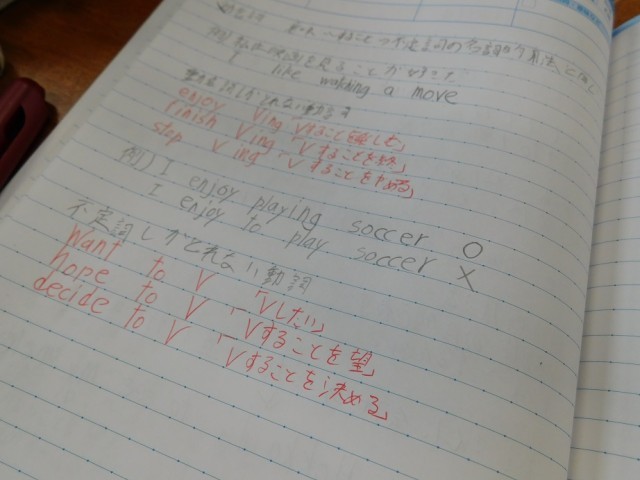 意味 〜すること → 不定詞の名詞的用法と同じ
例) 私は映画を見ることが好きだ
I like watching a move
動名詞しかとれない動詞
enjoy Ving 「Vすることを楽しむ」
finish Ving 「Vすることを終え」
stop Ving 「Vすることをやめる」
例) I enjoy playing soccer ○
I enjoy to play soccer ×
不定詞しかとれない動詞
want to V 「Vしたい」
hope to V 「Vすることを望」
decide to V 「Vすることを決める」